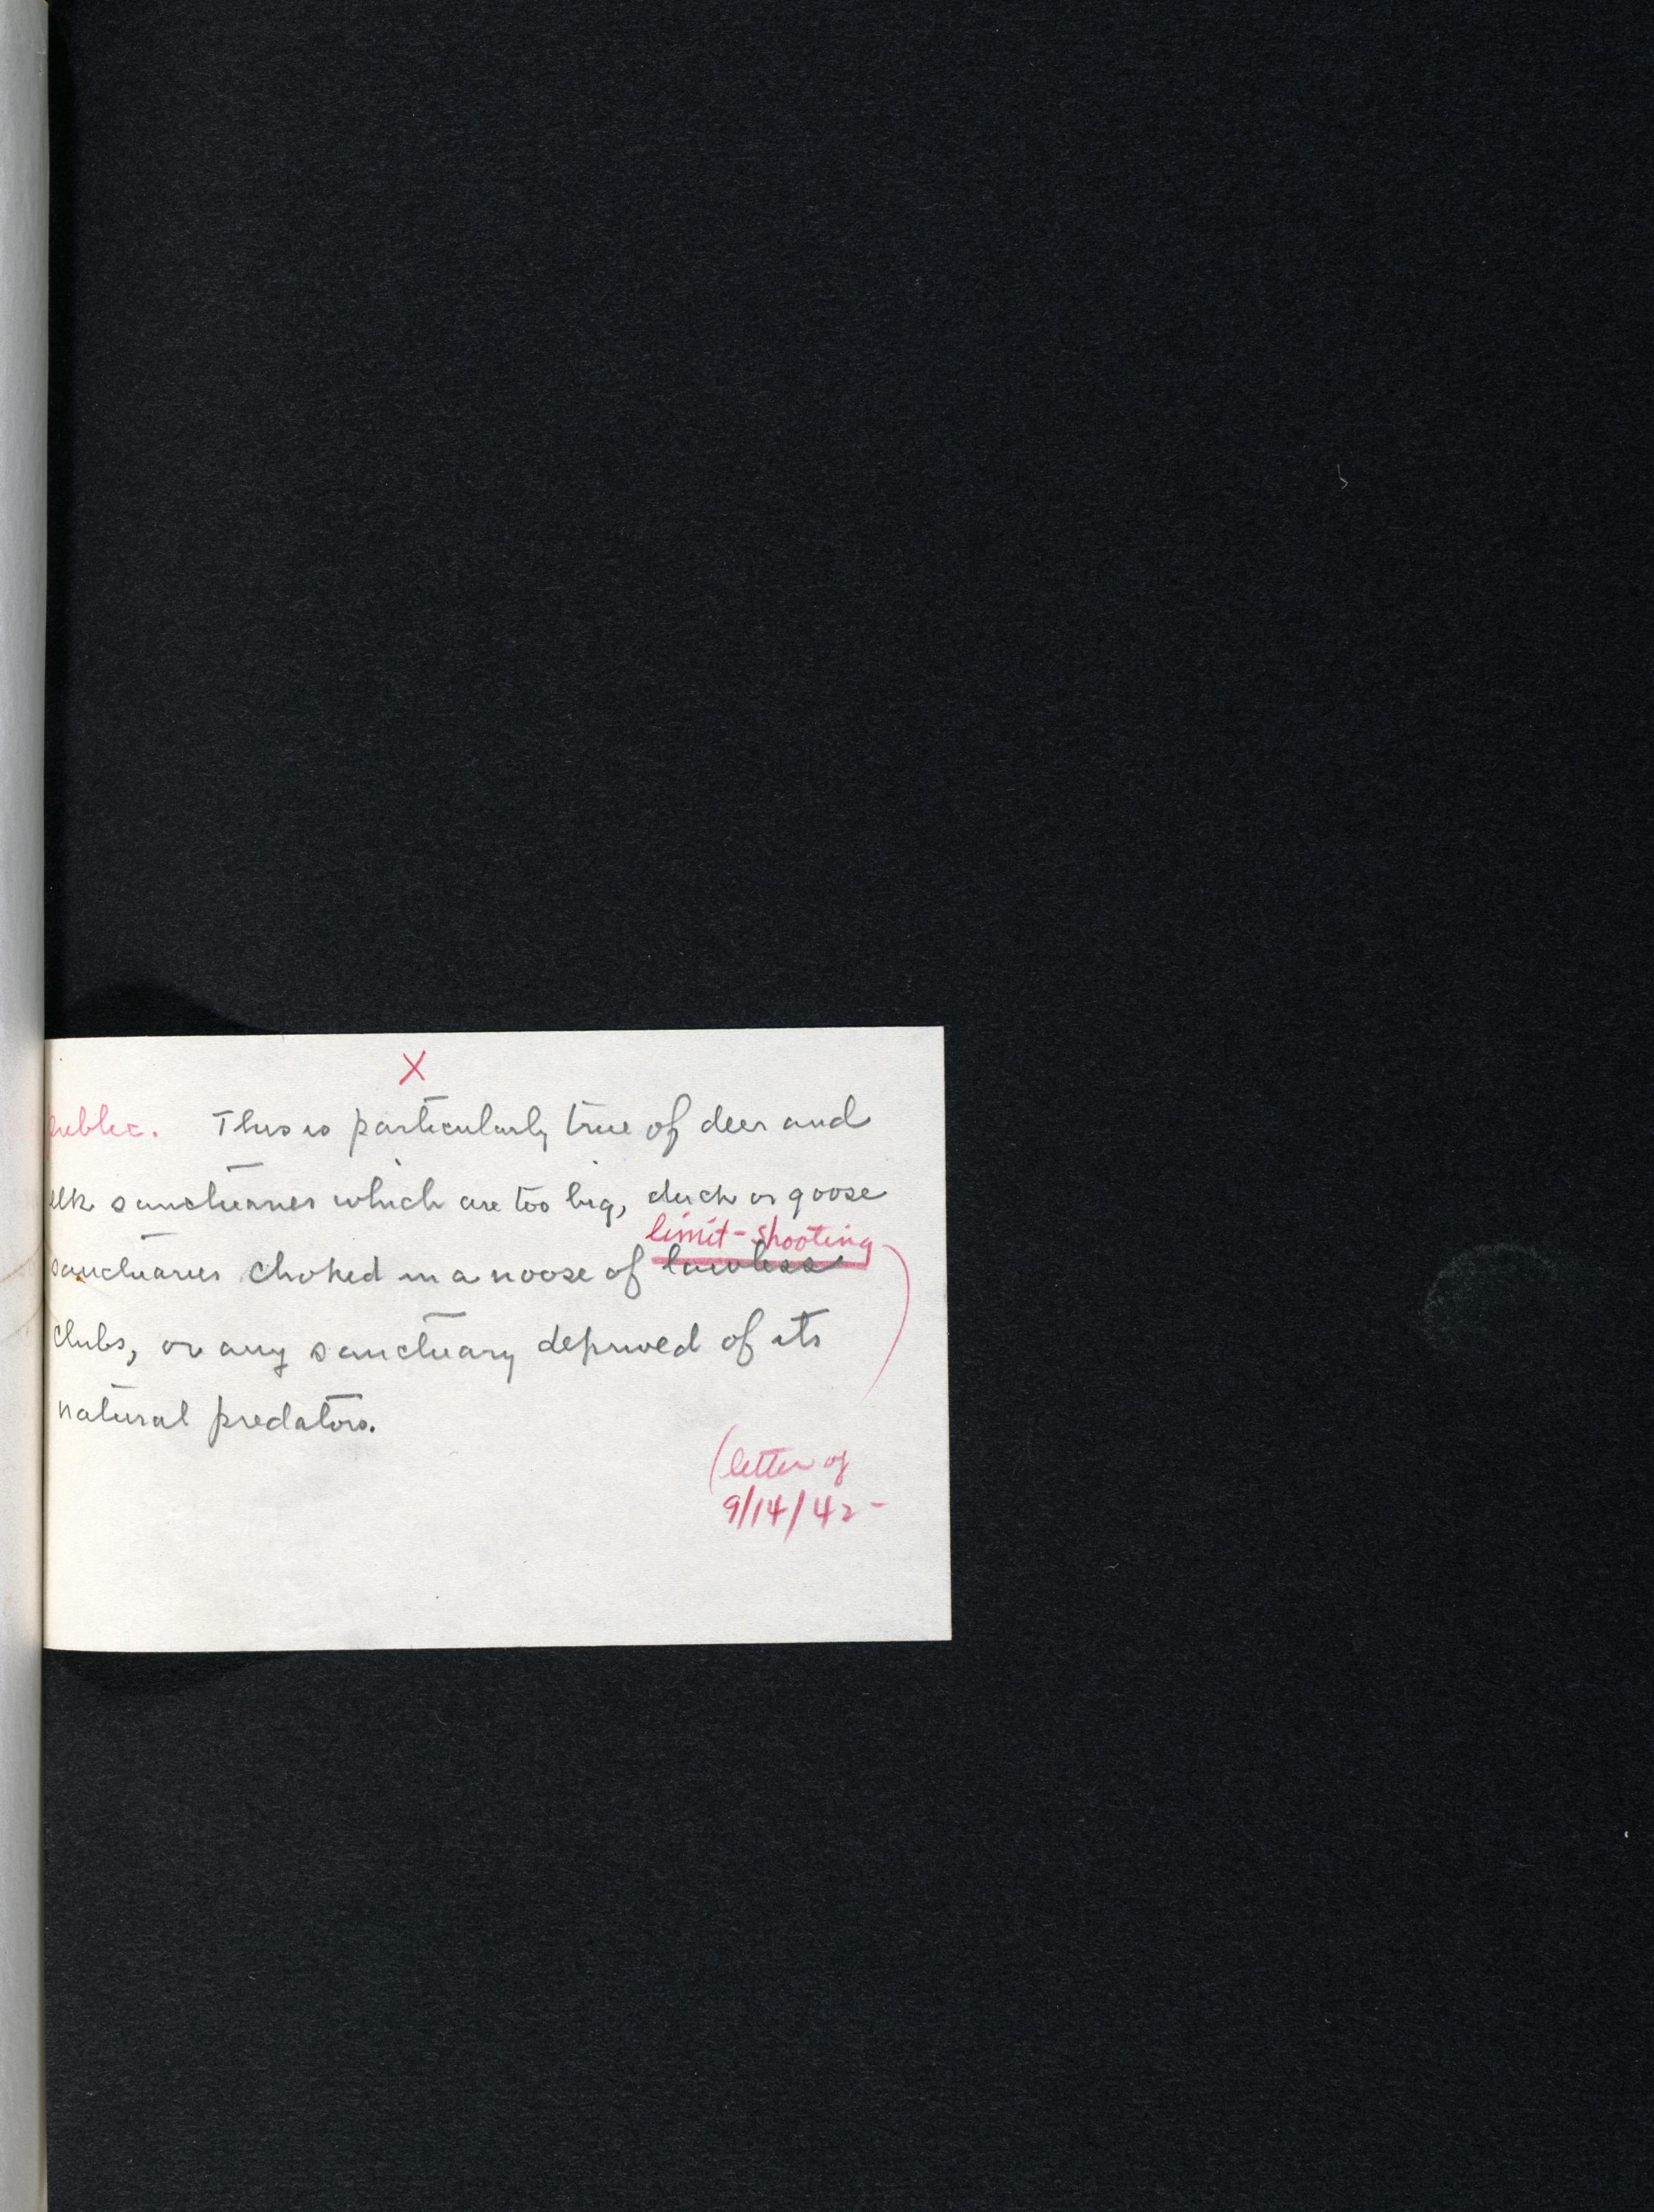 X
public. This is particularly true of deer and
elk sanctuaries which are too big, duck or goose
limit-shooting
sanctuaries choked in a noose of lawless
clubs, or any sanctuary deprived of its
natural predators.
(letter of
9/14/42-